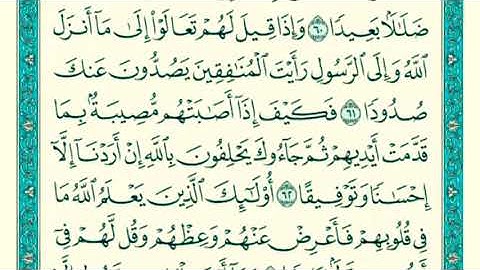 ضَلَٰلَۢا بَعِيدٗا ٦٠ وَإِذَا قِيلَ لَهُمۡ تَعَالَوۡاْ إِلَىٰ مَآ أَنزَلَ
ٱللَّهُ وَإِلَى ٱلرَّسُولِ رَأَيۡتَ ٱلۡمُنَٰفِقِينَ يَصُدُّونَ عَنكَ
صُدُودٗا ٦١ فَكَيۡفَ إِذَآ أَصَٰبَتۡهُم مُّصِيبَةُۢ بِمَا
قَدَّمَتۡ أَيۡدِيهِمۡ ثُمَّ جَآءُوكَ يَحۡلِفُونَ بِٱللَّهِ إِنۡ أَرَدۡنَآ إِلَّآ
إِحۡسَٰنٗا وَتَوۡفِيقًا ٦٢ أُوْلَٰٓئِكَ ٱلَّذِينَ يَعۡلَمُ ٱللَّهُ مَا
فِي قُلُوبِهِمۡ فَأَعۡرِضۡ عَنۡهُمۡ وَعِظۡهُمۡ وَقُل لَّهُمۡ فِيٓ